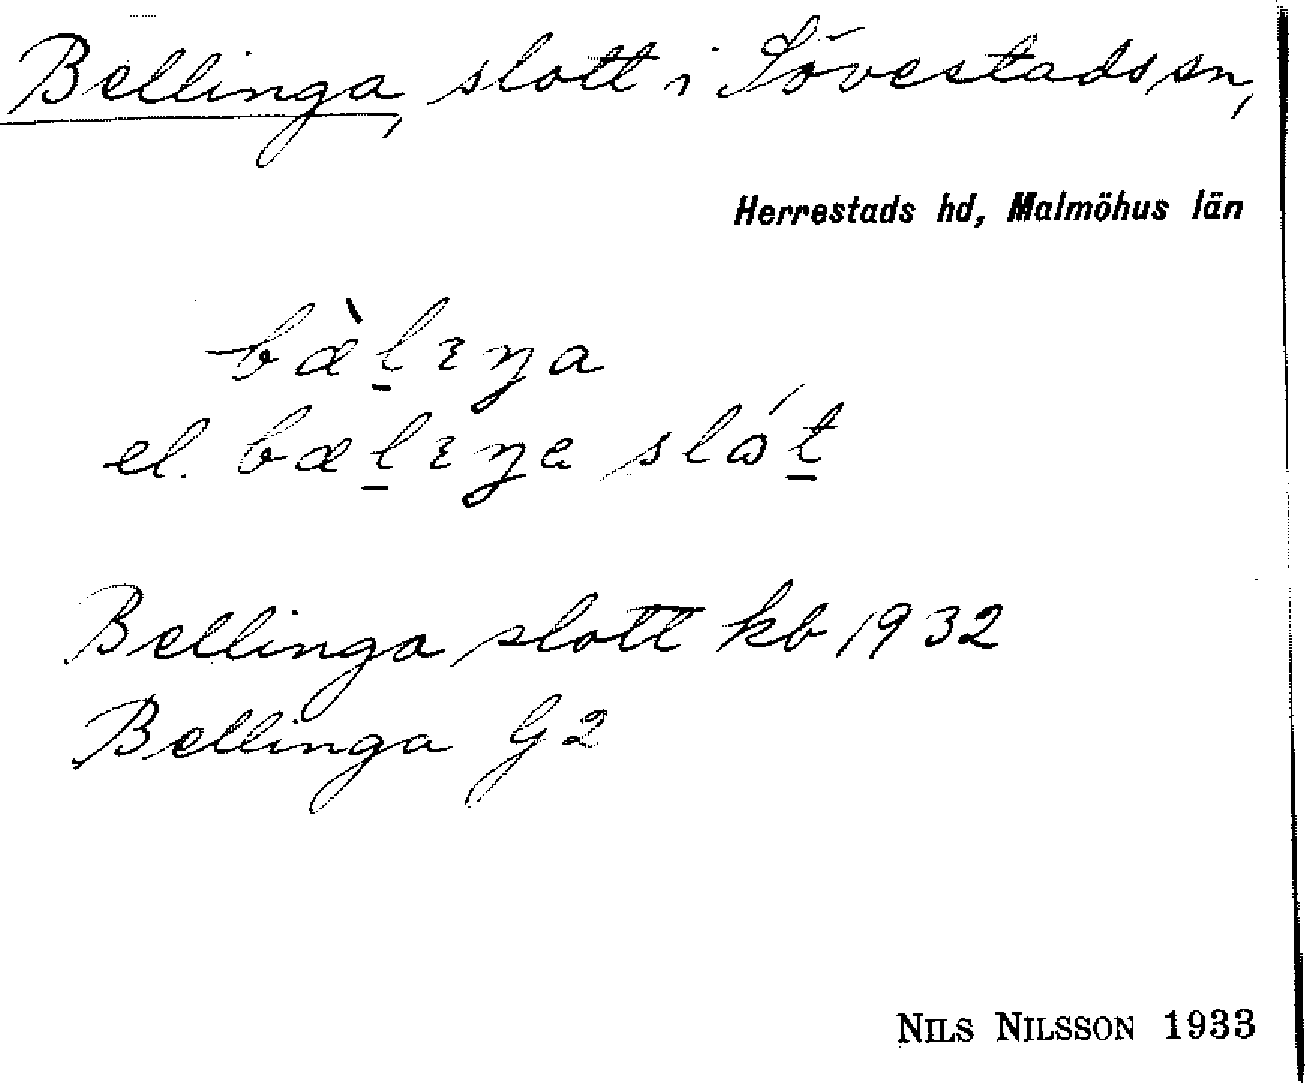 Bellinga, slott i Sövestads sn,
Herrestads hd, Malmöhus län
bæ̀l̠ɪŋa
el. bæl̠ɪŋa slát̠
Bellinga slott kb 1932
Bellinga G2
NILS NILSSON 1933